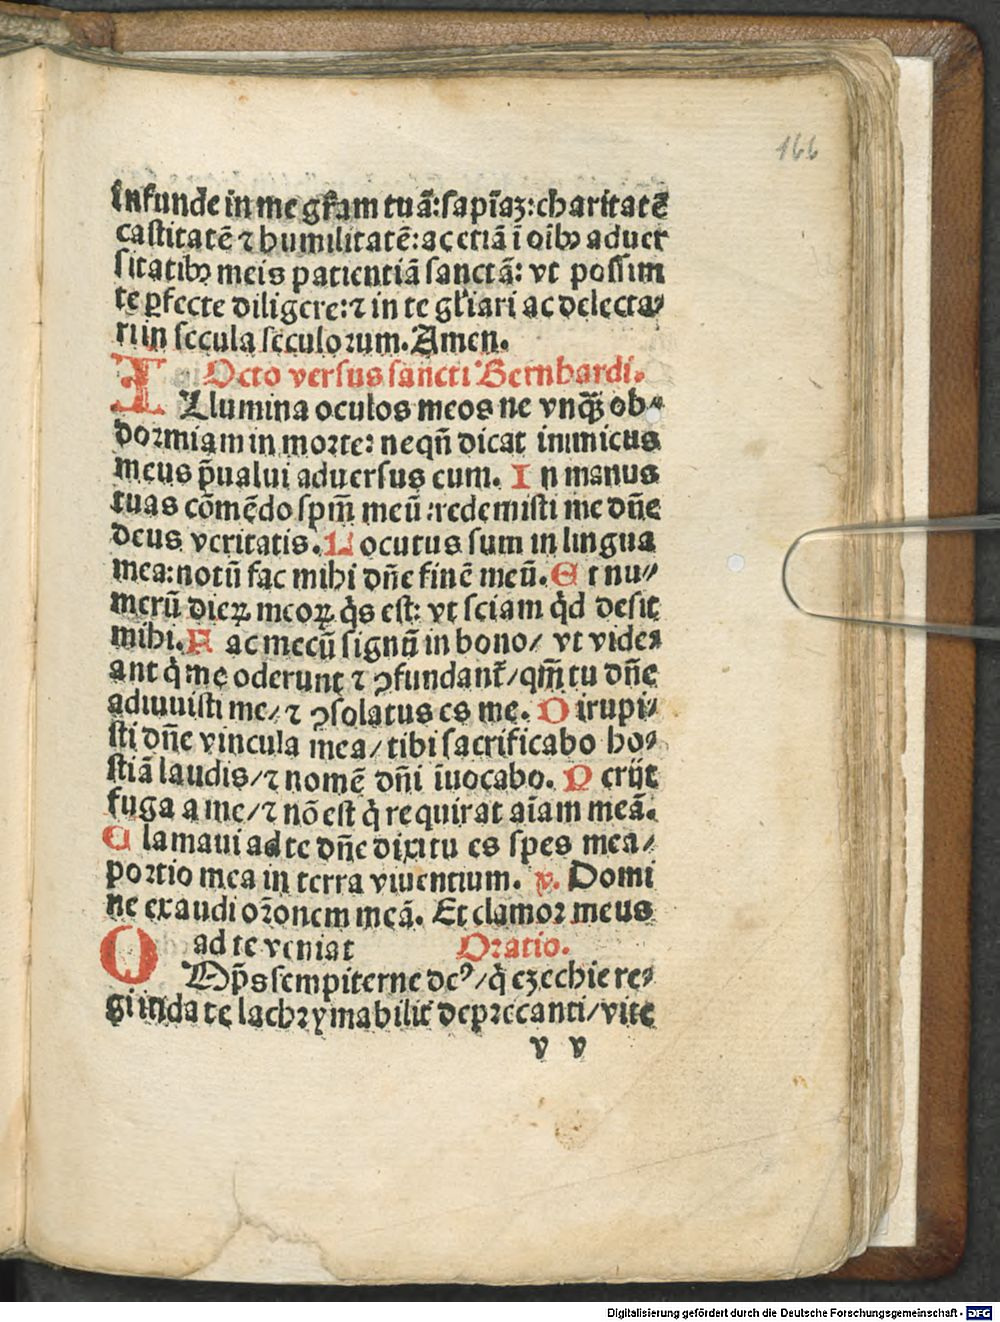 166
Infunde in me gr̄am tuā: sapīaꝫ: charitatē
castitatē ⁊ humilitatē: ac etiā ī oībꝰ aduer
sitatibꝰ meis patientiā sanctā: vt possim
te ꝑfecte diligere: ⁊ in te gl'iari ac delecta⸗
ri in secula seculoꝛum. Amen.
Octo versus sancti Bernhardi.
Illumina oculos meos ne vnqꝫ̄ ob⸗
doꝛmiam in moꝛte: neqn̄ dicat inimicus
meus p̄ualui aduersus eum. In manus
tuas cōmēdo spm̄ meū: redemisti me dn̄e
deus veritatis. Locutus sum in lingua
mea: notū fac mihi dn̄e finē meū. Et nu⸗
merū dieꝝ meoꝝ q̇s est: vt sciam qͥd desit
mihi. Fac mecū signū in bono/ vt vide⸗
ant qͥ me oderunt ⁊ ꝯfundant᷑/ qm̄ tu dn̄e
adiuuisti me/ ⁊ ꝯsolatus es me. Dirupi⸗
sti dn̄e vincula mea/ tibi sacrificabo ho⸗
stiā laudis/ ⁊ nomē dn̄i īuocabo. Perijt
fuga a me/ ⁊ nō est qͥ requirat aīam meā.
Clamaui ad te dn̄e dixi tu es spes mea/
poꝛtio mea in terra viuentium. v. Domi
ne exaudi oꝛ̄onem meā. Et clamoꝛ meus
ad te veniat Oꝛatio.
OMp̄s sempiterne deꝰ/ qͥ ezechie re⸗
gi iuda te lachꝛymabilit᷑ depꝛecanti/ vite
v v
Digitalisierung gefördert durch die Deutsche Forschungsgemeinschaft - DFG